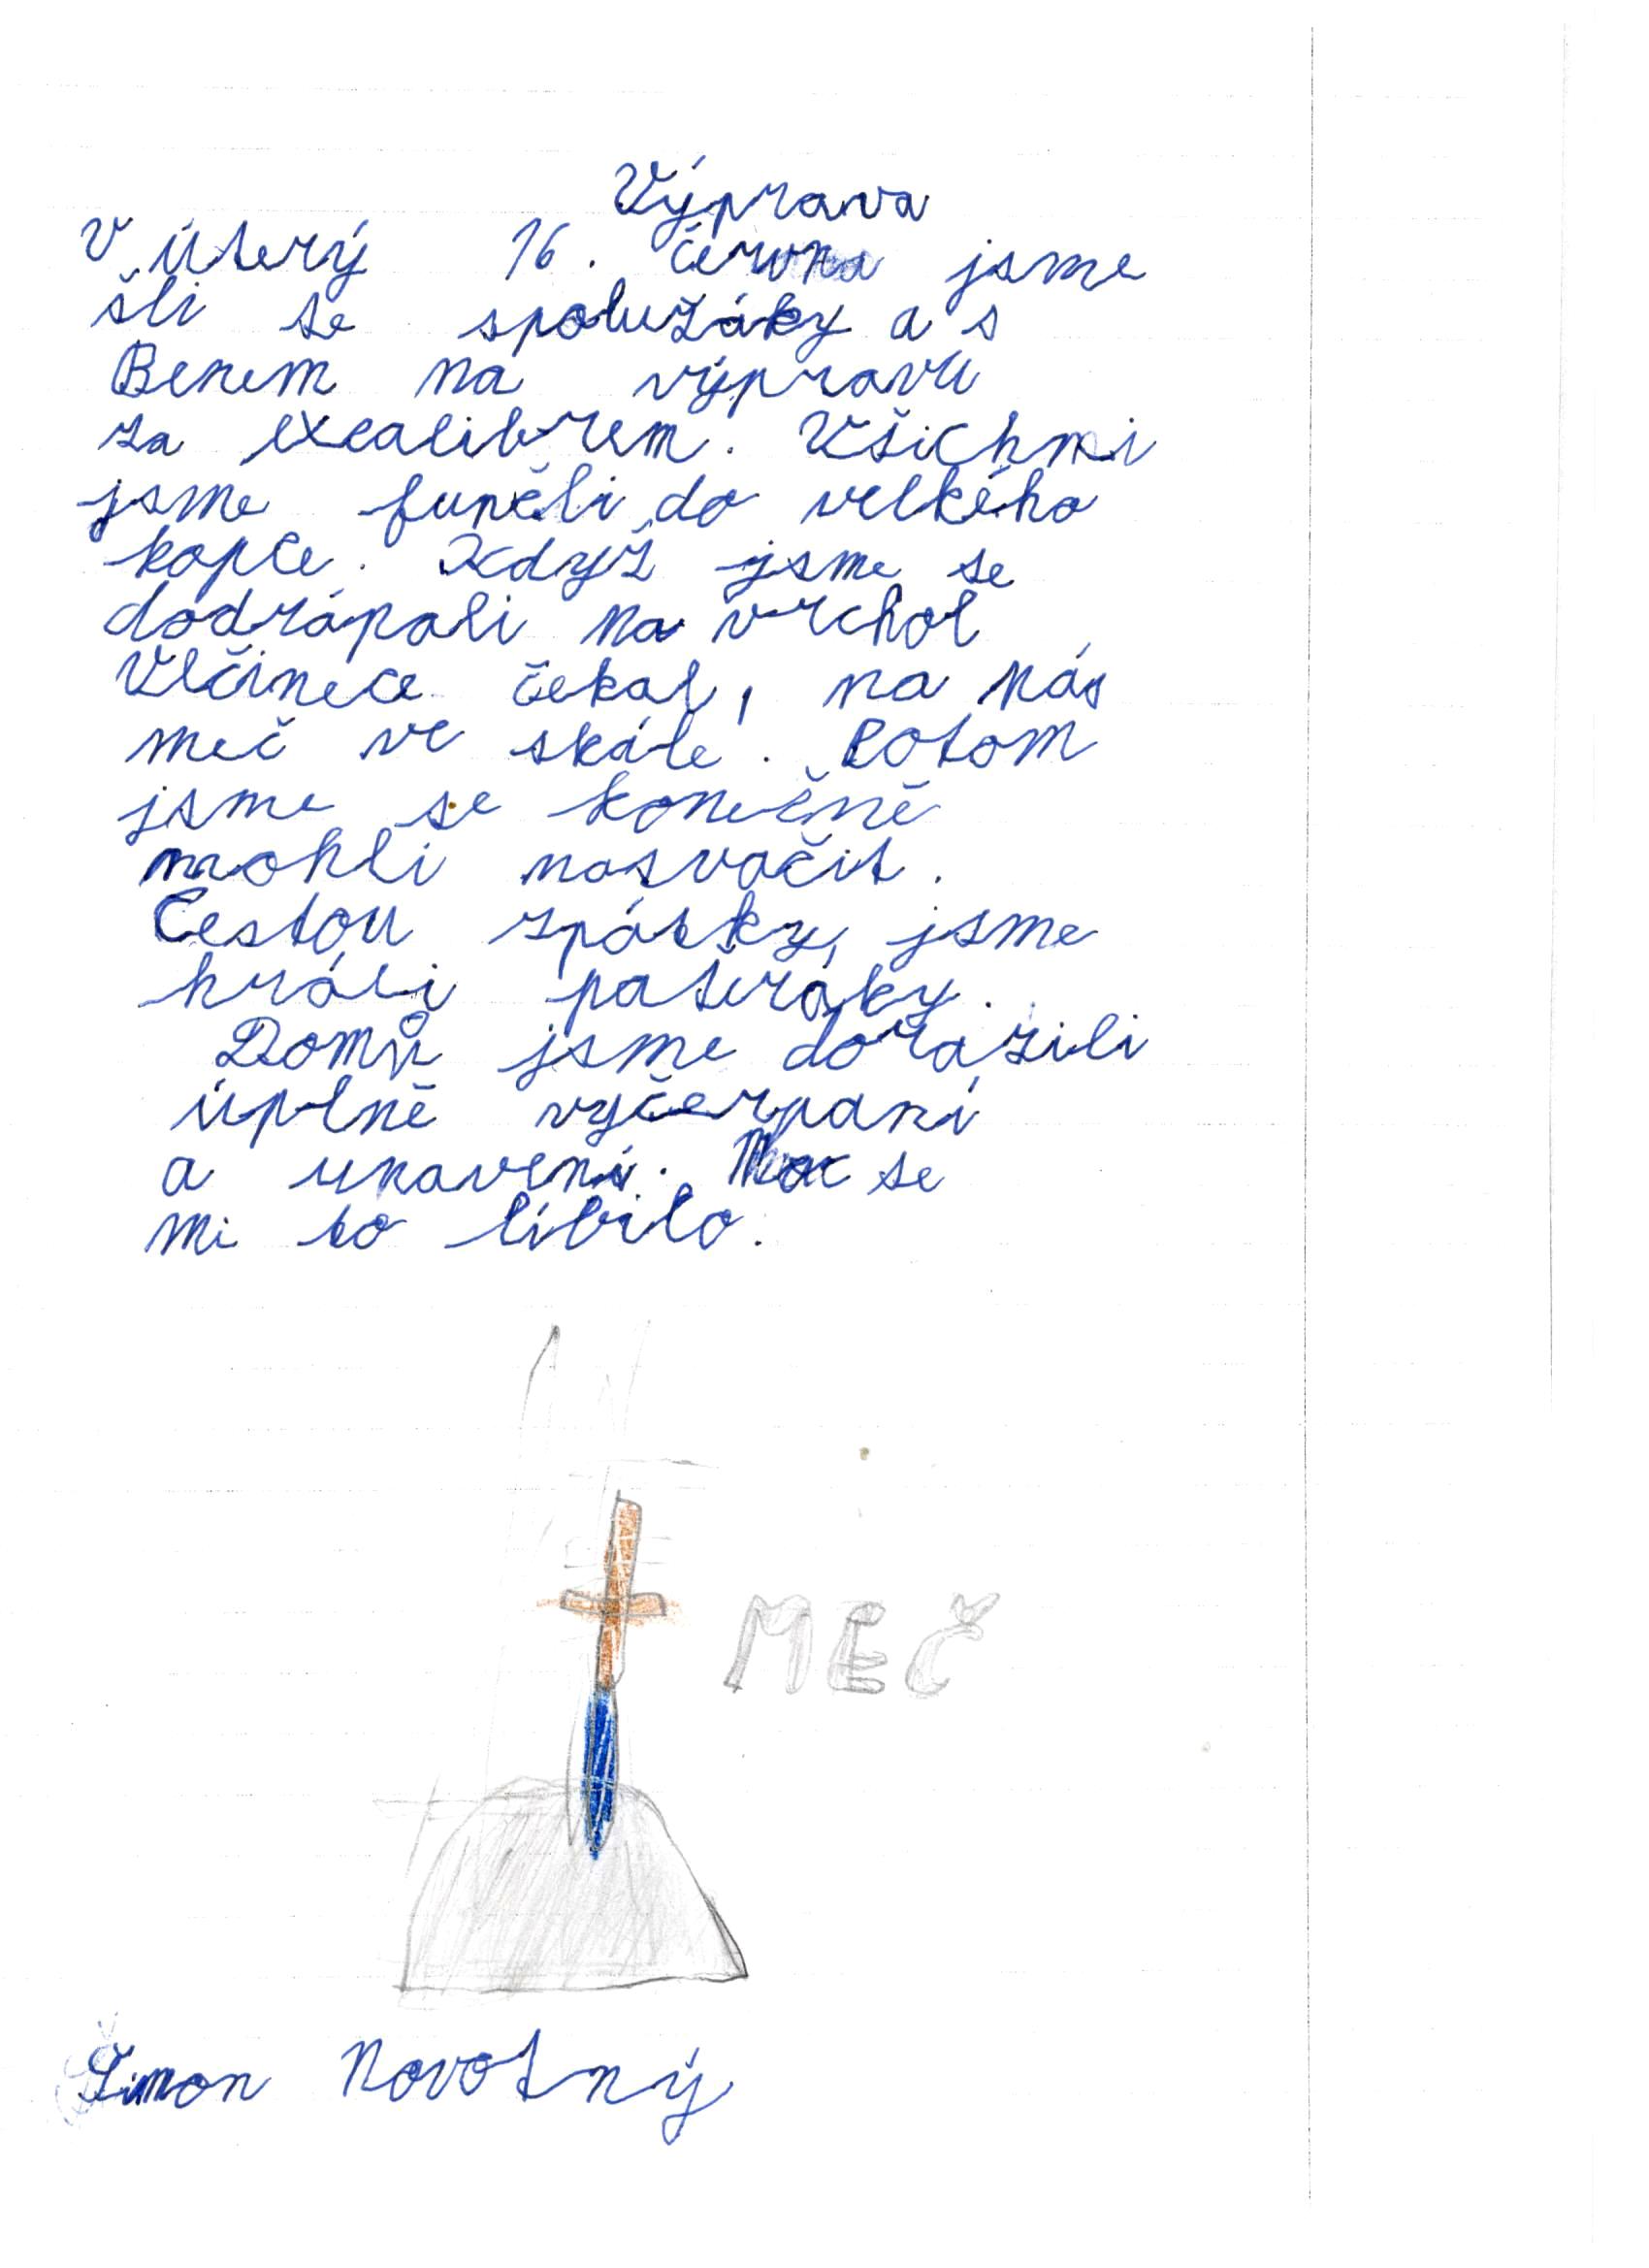 Výprava
V úterý 16. června jsme
šli se spolužáky a s
Benem na výpravu
za excalibrem. Všichni
jsme funěli do velkého
kopce. Když jsme se
dodrápali na vrchol
Vlčinece čekal, na nás
meč ve skále. Potom
jsme se konečně
mohli nasvačit.
Cestou zpátky, jsme
hráli patěráky.
Domů jsme dorazili
úplně vyčerpaní
a unavení. Moc se
mi to líbilo.
MEČ
Šimon Novotný